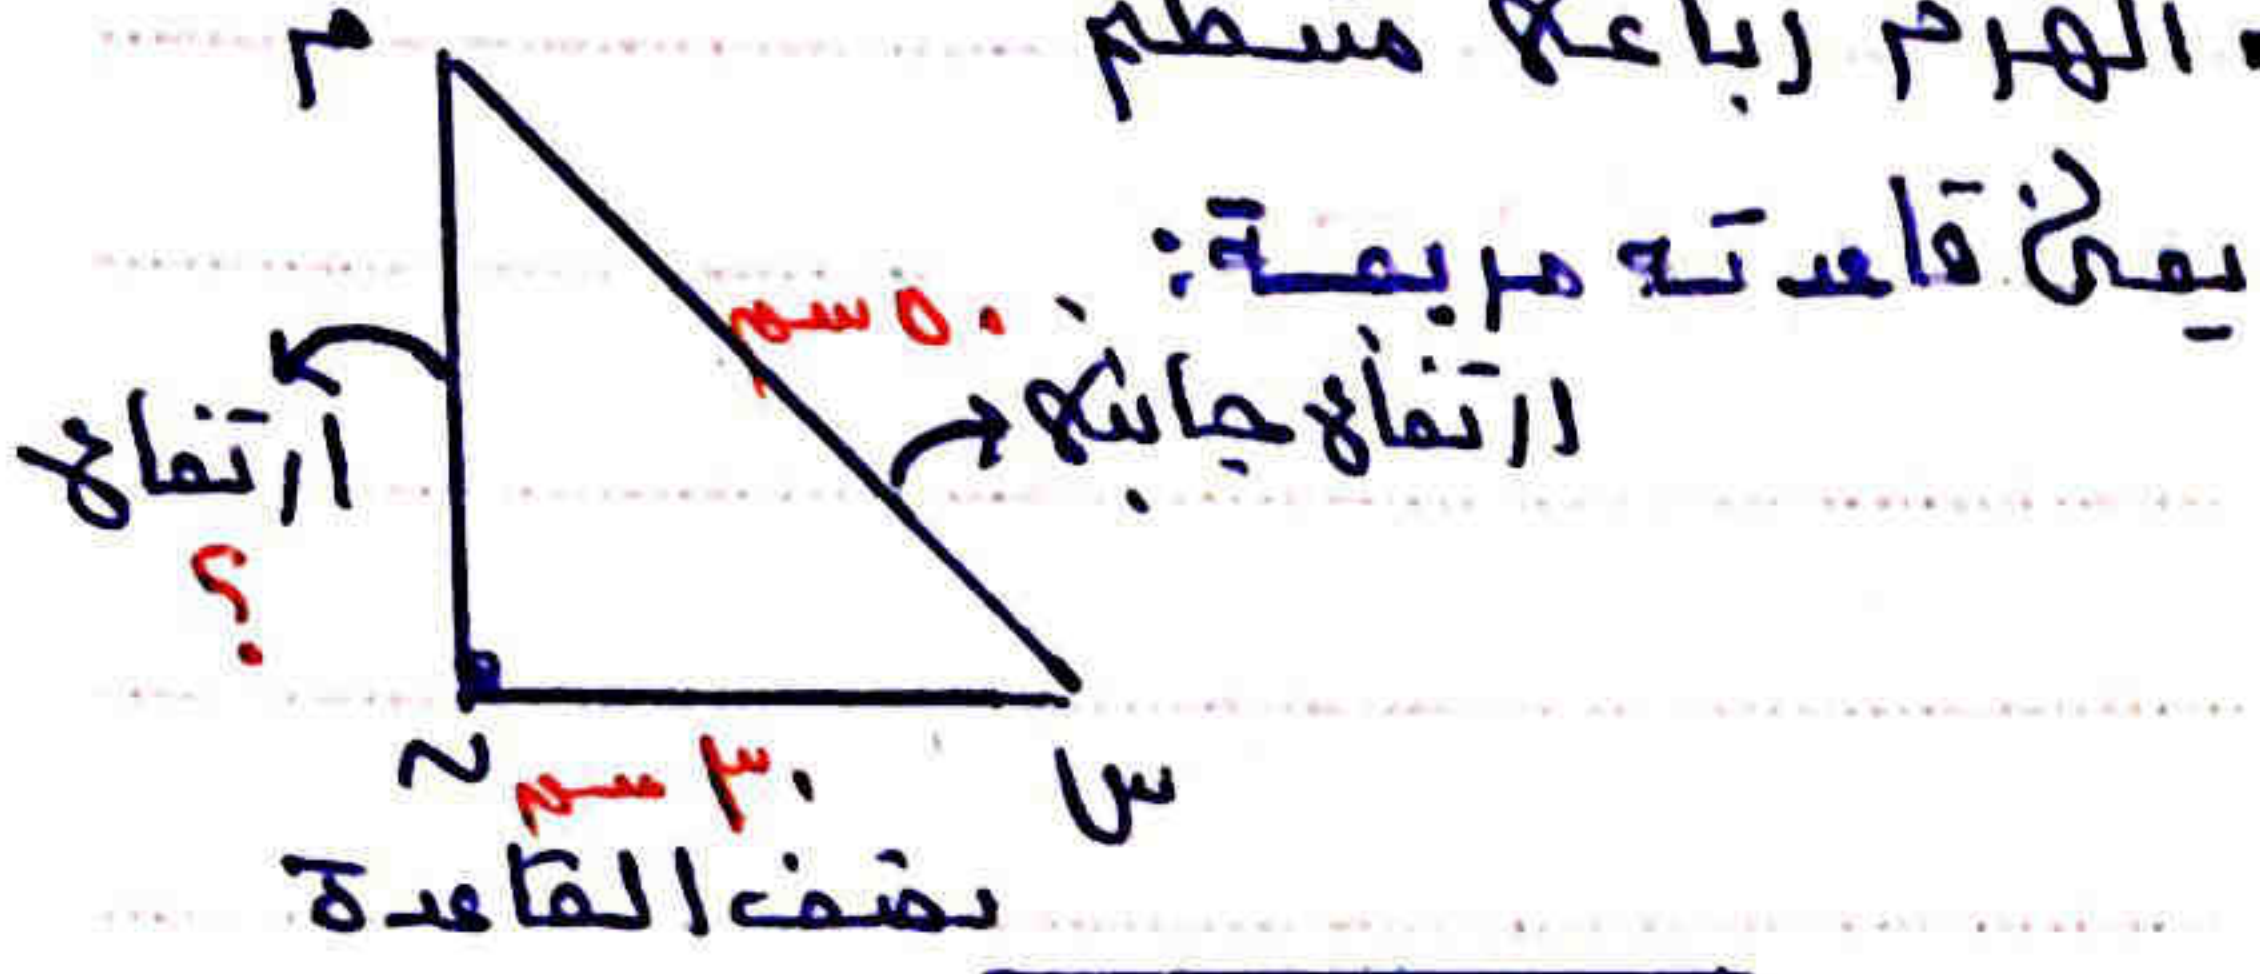 الهرم رباعي منتظم
م
يعني قاعدته مربعة:
٥٠ سم
ارتفاع جانبي
ارتفاع
؟
ن
٣٠ سم
س
نصف القاعدة